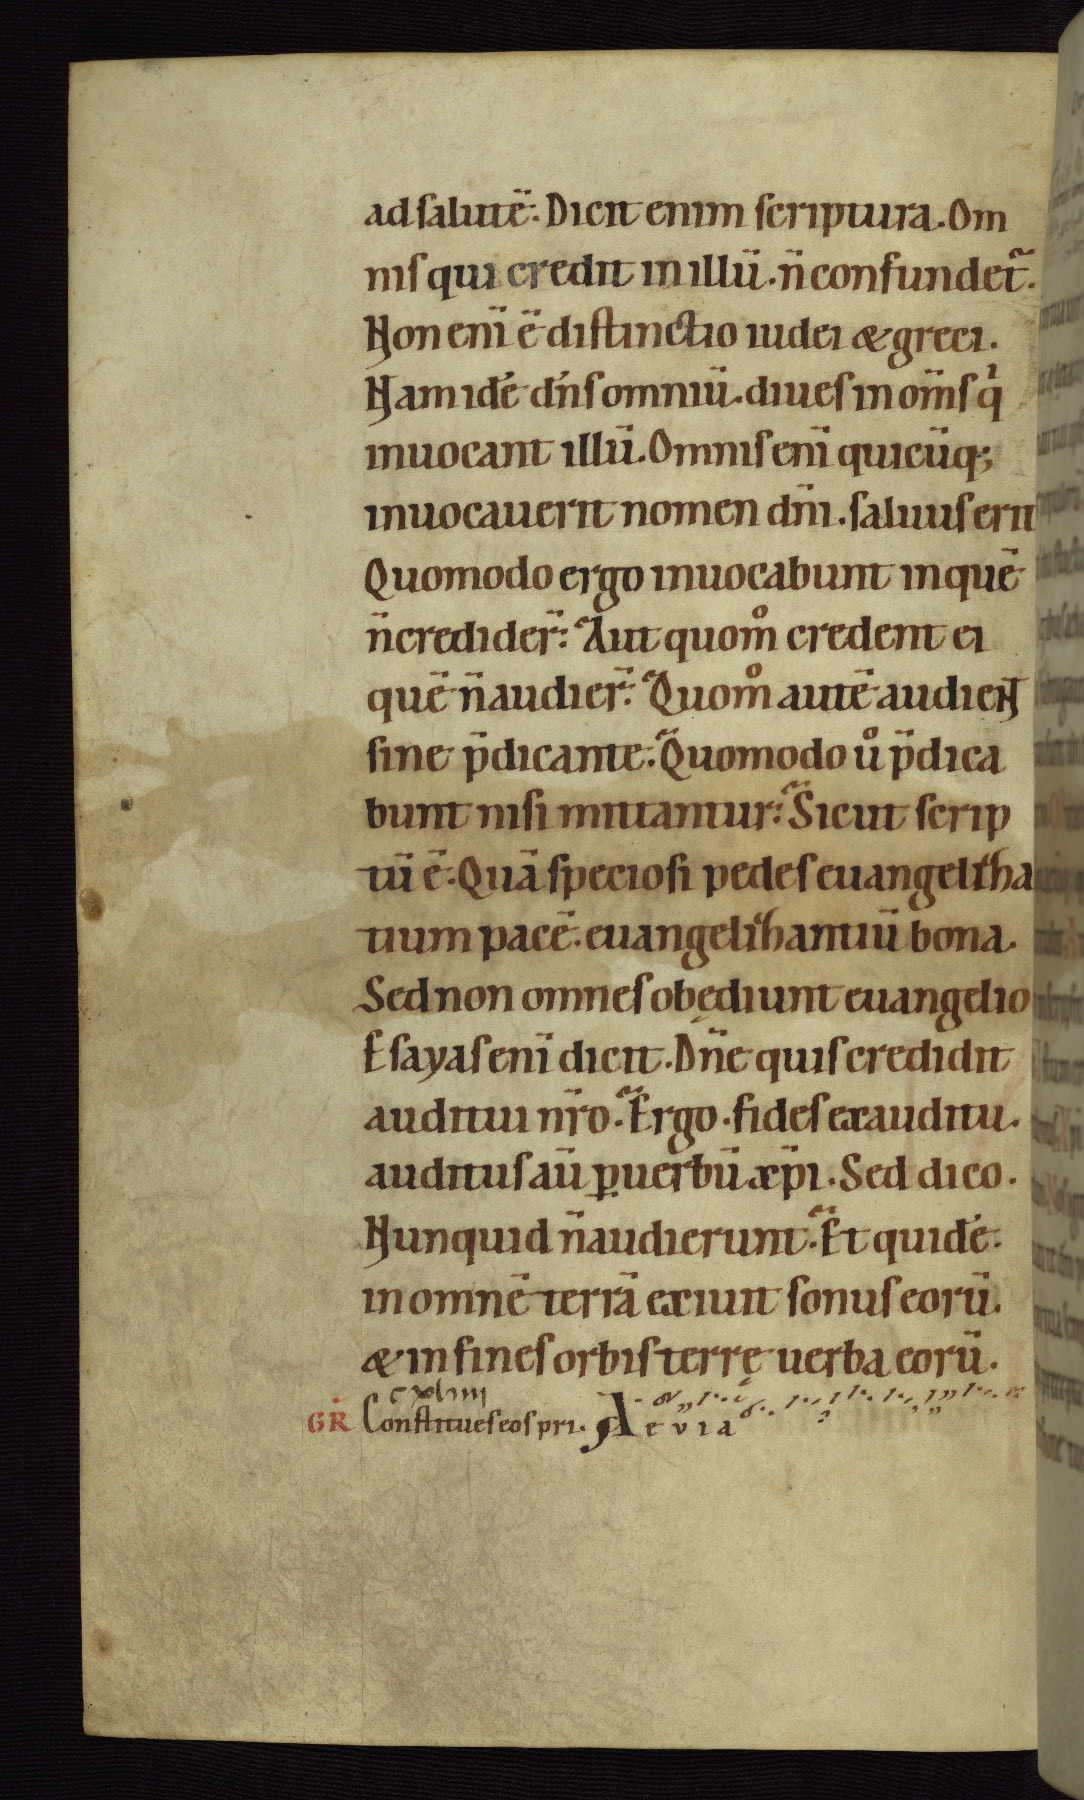 ad salutē. Dicit enim scriptura. Om
nis qui credit in illū. n̄ confundet̄.
Non enī ē distinctio iudei & greci.
Nam idē dn̄s omniū. diues in om̄s qͥ
inuocant illū. Omnis enī quicūq;
inuocauerit nomen dn̄i. saluus erit
Quomodo ergo inuocabunt in quē
n̄ credider̄? Aut quom̊ credent ei
quē n̄ audier̄? Quom̊ autē audient
sine p̄dicante? Quomodo ů p̄dica
bunt nisi mittantur? Sicut scrip
tū ē. Quā speciosi pedes euangeliza
tium pacē. euangelizantiū bona.
Sed non omnes obędiunt euangelio
Esayas enī dicit. Dn̄e quis credidit
auditui nr̄o? Ergo fides ex auditu.
auditus aū ꝑ uerbū xp̄i. Sed dico.
Nunquid n̄ audierunt? Et quidē
in omnē terrā exiuit sonus eorū.
& in fines orbis terrę uerba eorū.
cxliiii
GR Constitues eos pri. A e v i a